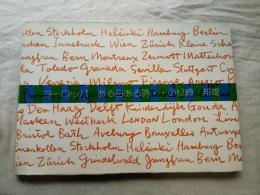 ollen Stockholm Helsinki Hamburg Berlin
chen Innsbruck Wien Zürich Kleine Sche
Jungfrau Bern Montreux Zermatt Matterhorn
Toledo Granada Sevilla Stuttgart
Venezia Milano Firenze Arezzo
ヨーロッパ ある日ある時 小松崎・邦雄
Den Haag Delft Kinderdijke Gouda A
Marken Westkerk London London
Bristol Bath Avebury Bruxelles Antwerpe
ollen Stockholm Helsinki Hamburg Be
Wien Zürich Grindelwald Jungfrau Bern Mo